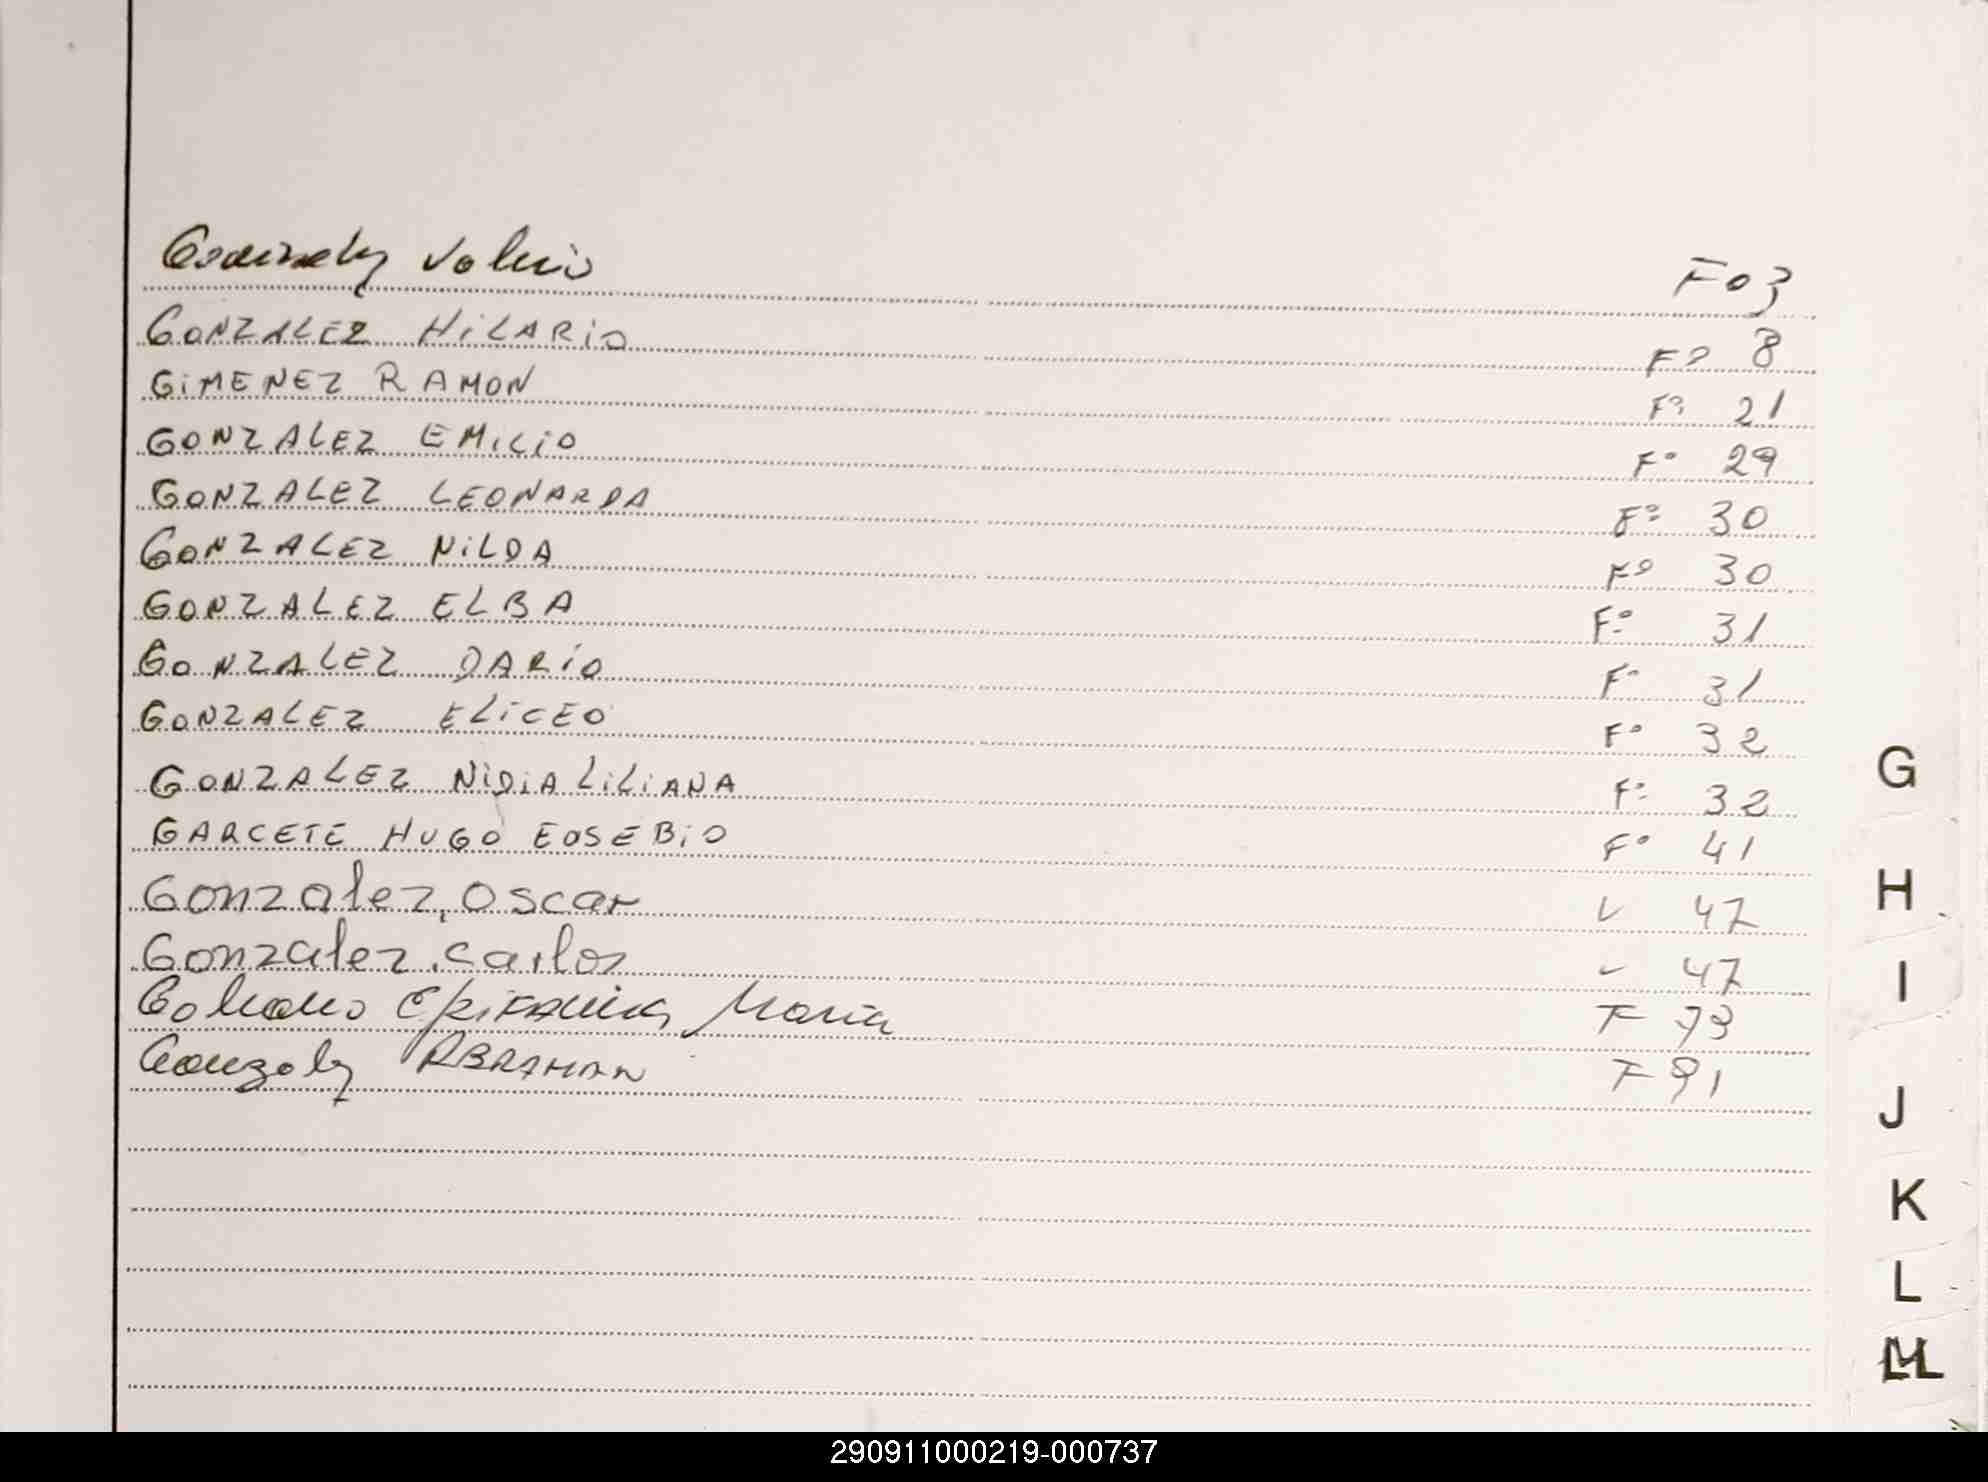 Gonzalez F o 3
GONZALEZ HILARIO Fº 8
GIMENEZ RAMON Fº 21
GONZALEZ EMILIO Fº 29
GONZALEZ LEONARDA Fº 30
GONZALEZ NILDA Fº 30
GONZALEZ ELBA Fº 31
GONZALEZ DARIO Fº 31
GONZALEZ ELICEO Fº 32
GONZALEZ NIDIA LILIANA Fº 32
GARCETE HUGO EUSEBIO Fº 41
Gonzalez, Oscar 47
Gonzalez, Carlos 47
Epifania Maria F 73
Gonzalez ABRAHAN F 91
G
H
I
J
K
L
LL
M
290911000219-000737